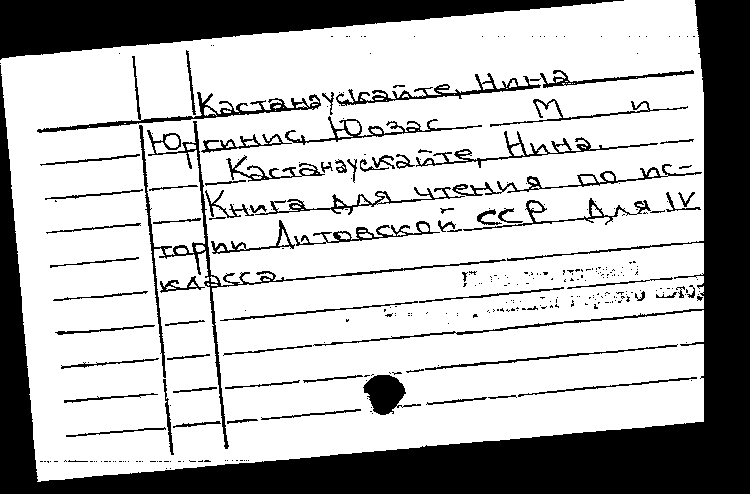 Кастанаускайте, Нина
Юргинис, Юозас М п
Кастанаускайте, Нина.
Книга для чтения по ис-
тории Литовской ССР Для IV
класса.
первого автор